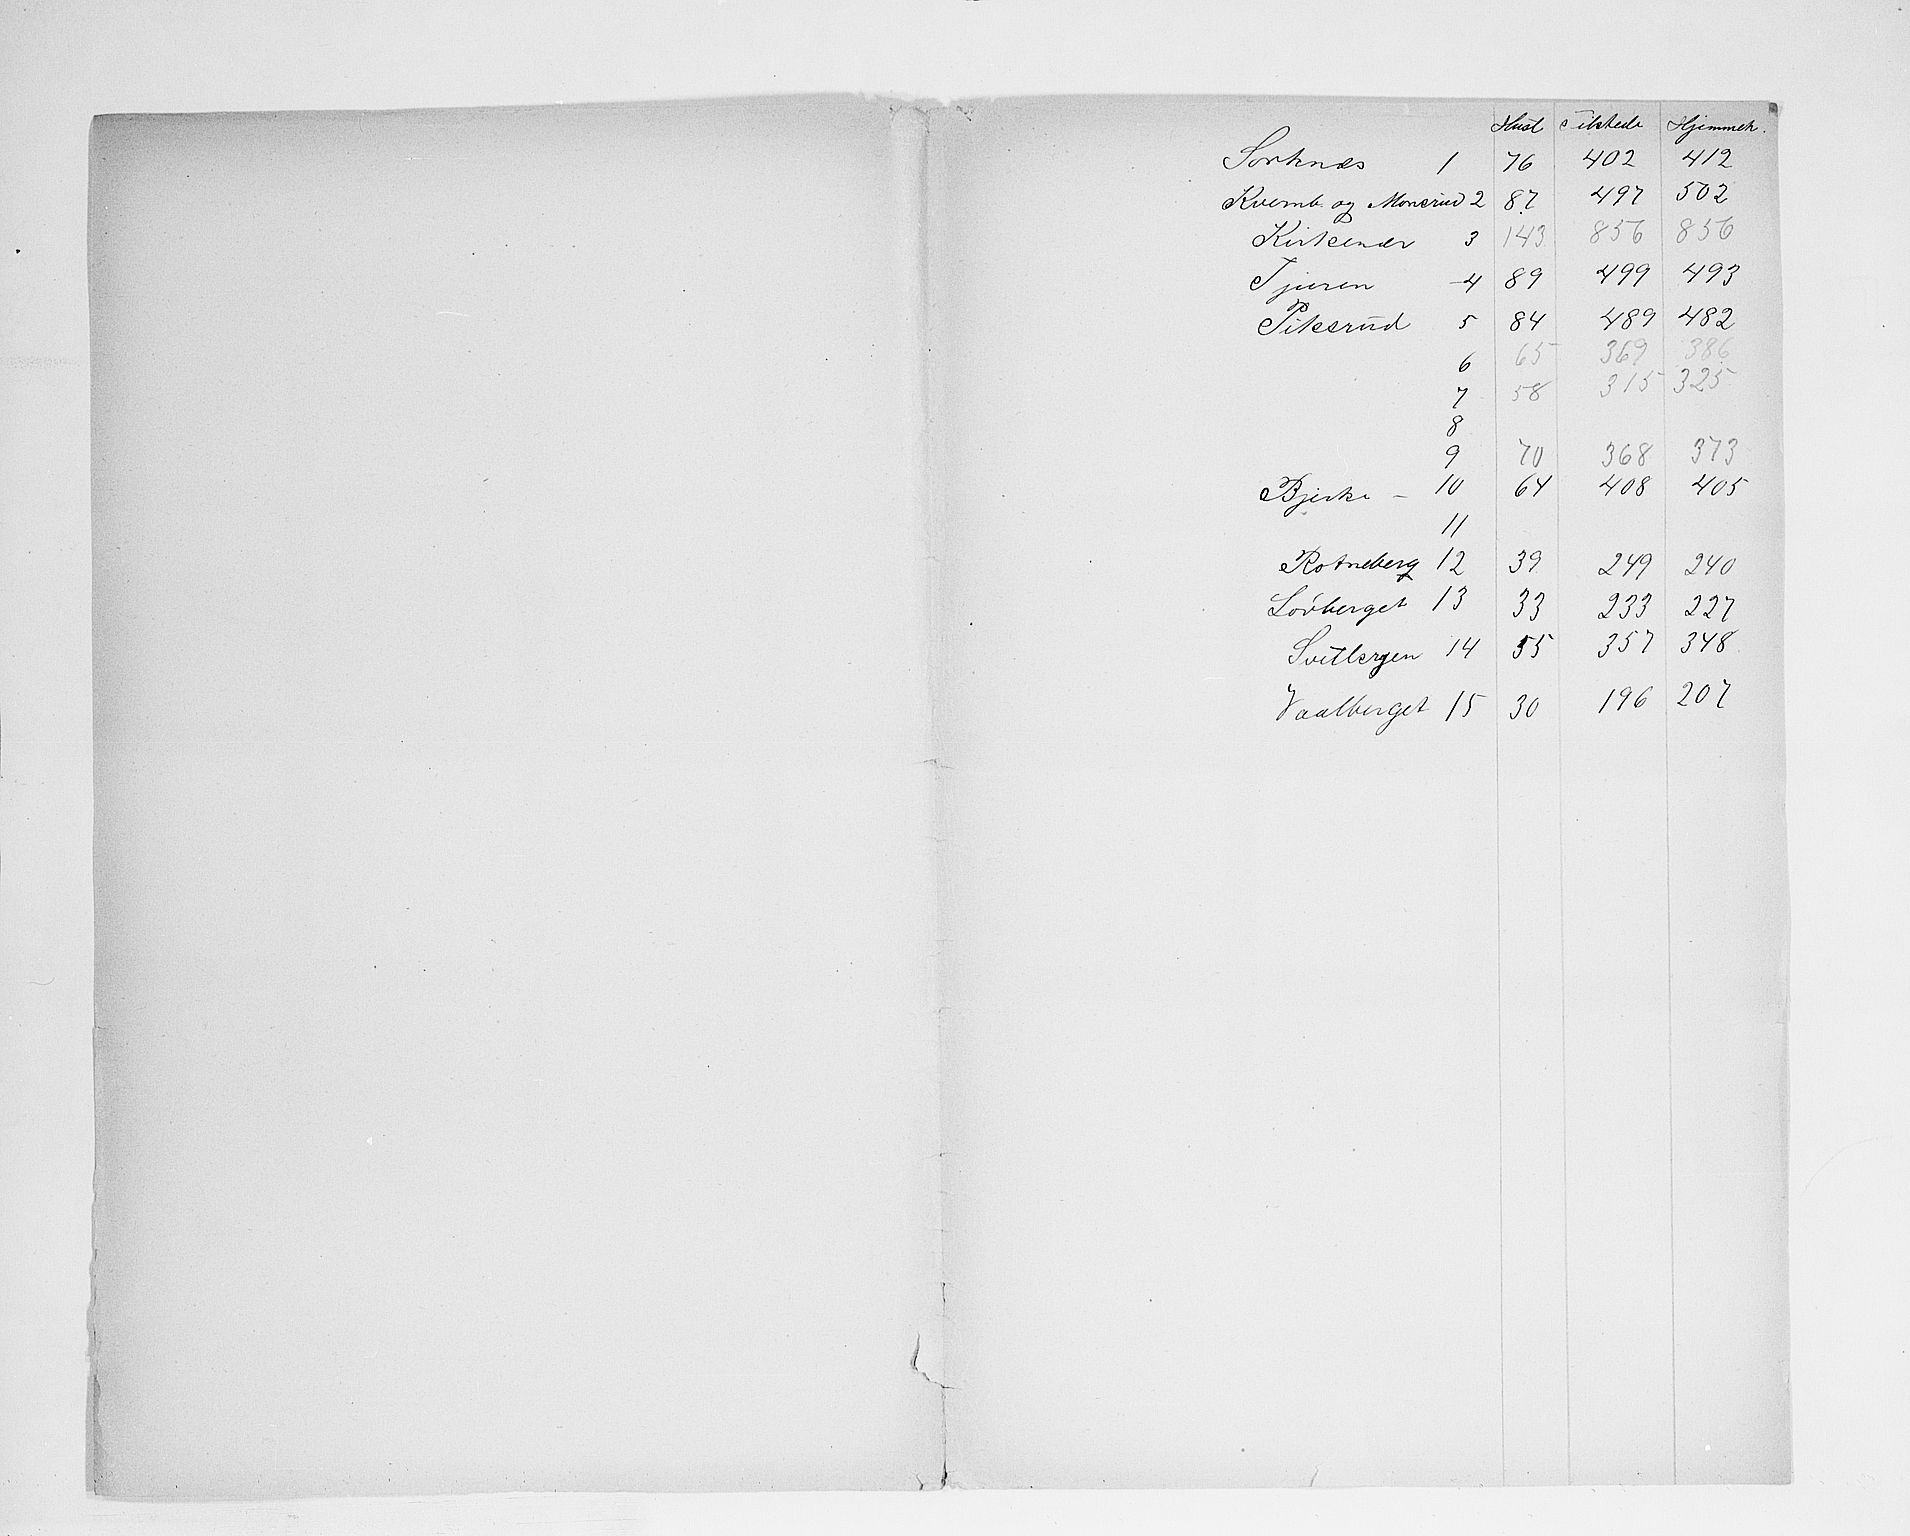 Husl Tilstede Hjemmeh.
Sorknæs 1 76 402 412
Kvemb. og Monsrud 2 87 497 502
Kirkenær 3 143 856 856
Tjuren 4 89 499 493
Piksrud 5 84 489 482
6 65 369 386
7 58 315 325
8
9 70 368 373
Bjerke - 10 64 408 405
11
Rotneberg 12 39 249 240
Lövberget 13 33 233 227
Svitbergen 14 55 357 348
Vaalberget 15 30 196 207